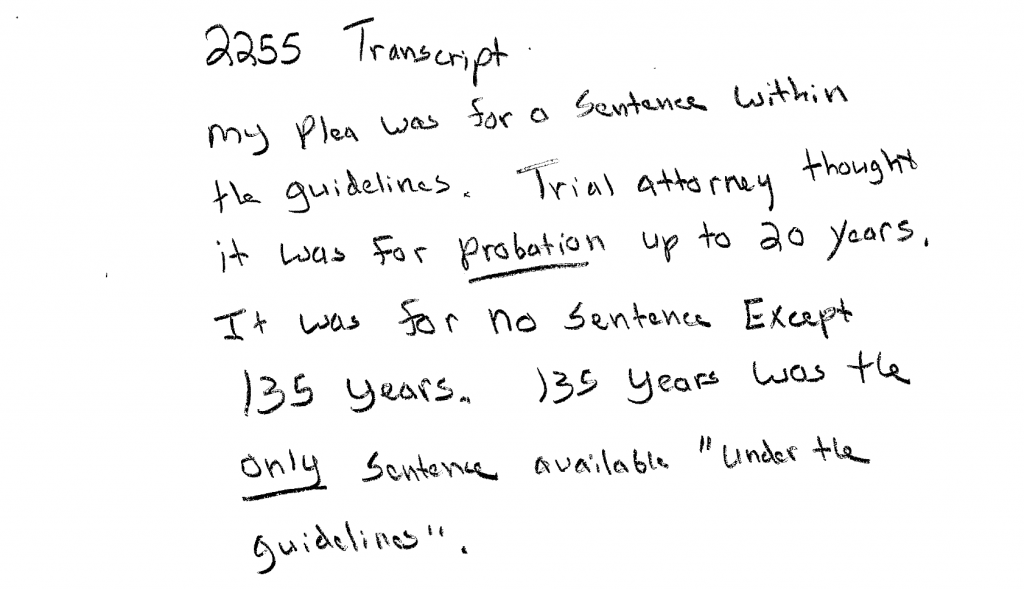 2255 Transcript
My Plea was for a Sentence within
the guidelines. Trial attorney thought
it was for probation up to 20 years.
It was for no sentence Except
135 years. 135 years was the
only Sentence available "under the
guidelines".